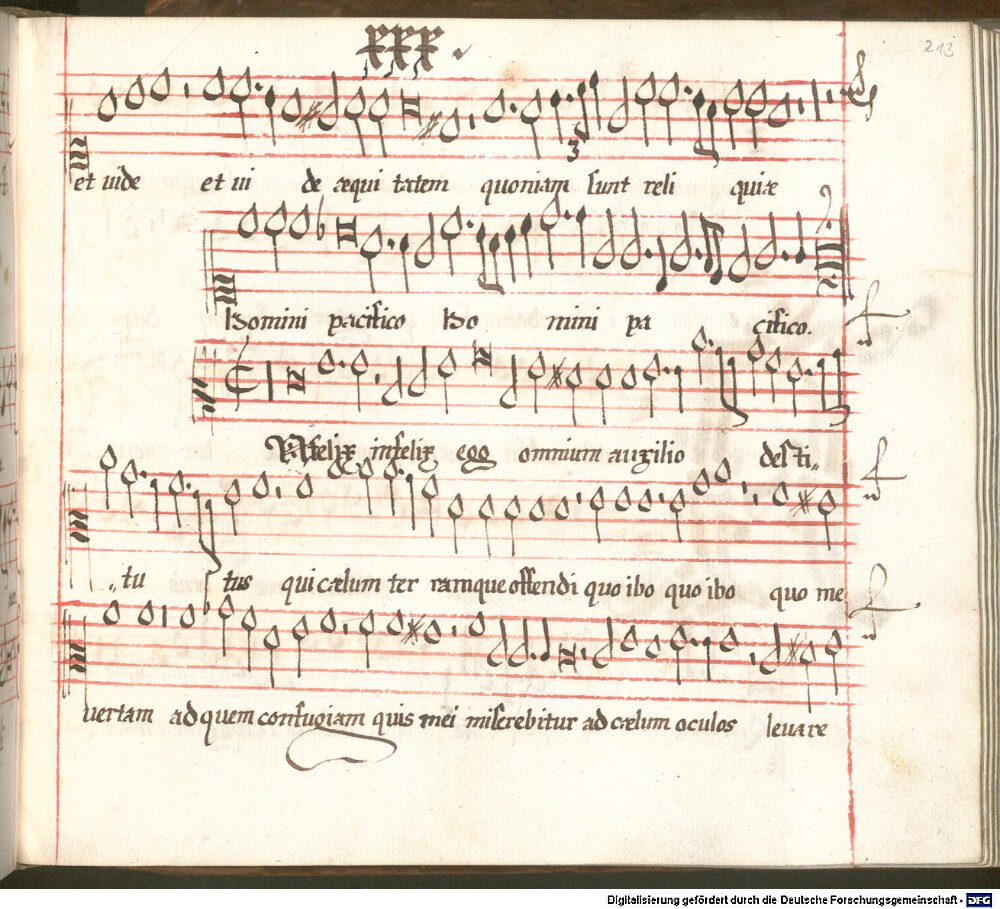 xxx.
213
3
et uide et ui de æqui tatem quoniam sunt reli quiæ
Homini pacifico Ho mini pa cifico.
INfelix infelix ego omnium auxilio desti„
„tu tus qui cælum ter ramque offendi quo ibo quo ibo quo me
uertam ad quem confugiam quis mei miserebitur ad cælum oculos leuare
Digitalisierung gefördert durch die Deutsche Forschungsgemeinschaft - DFG